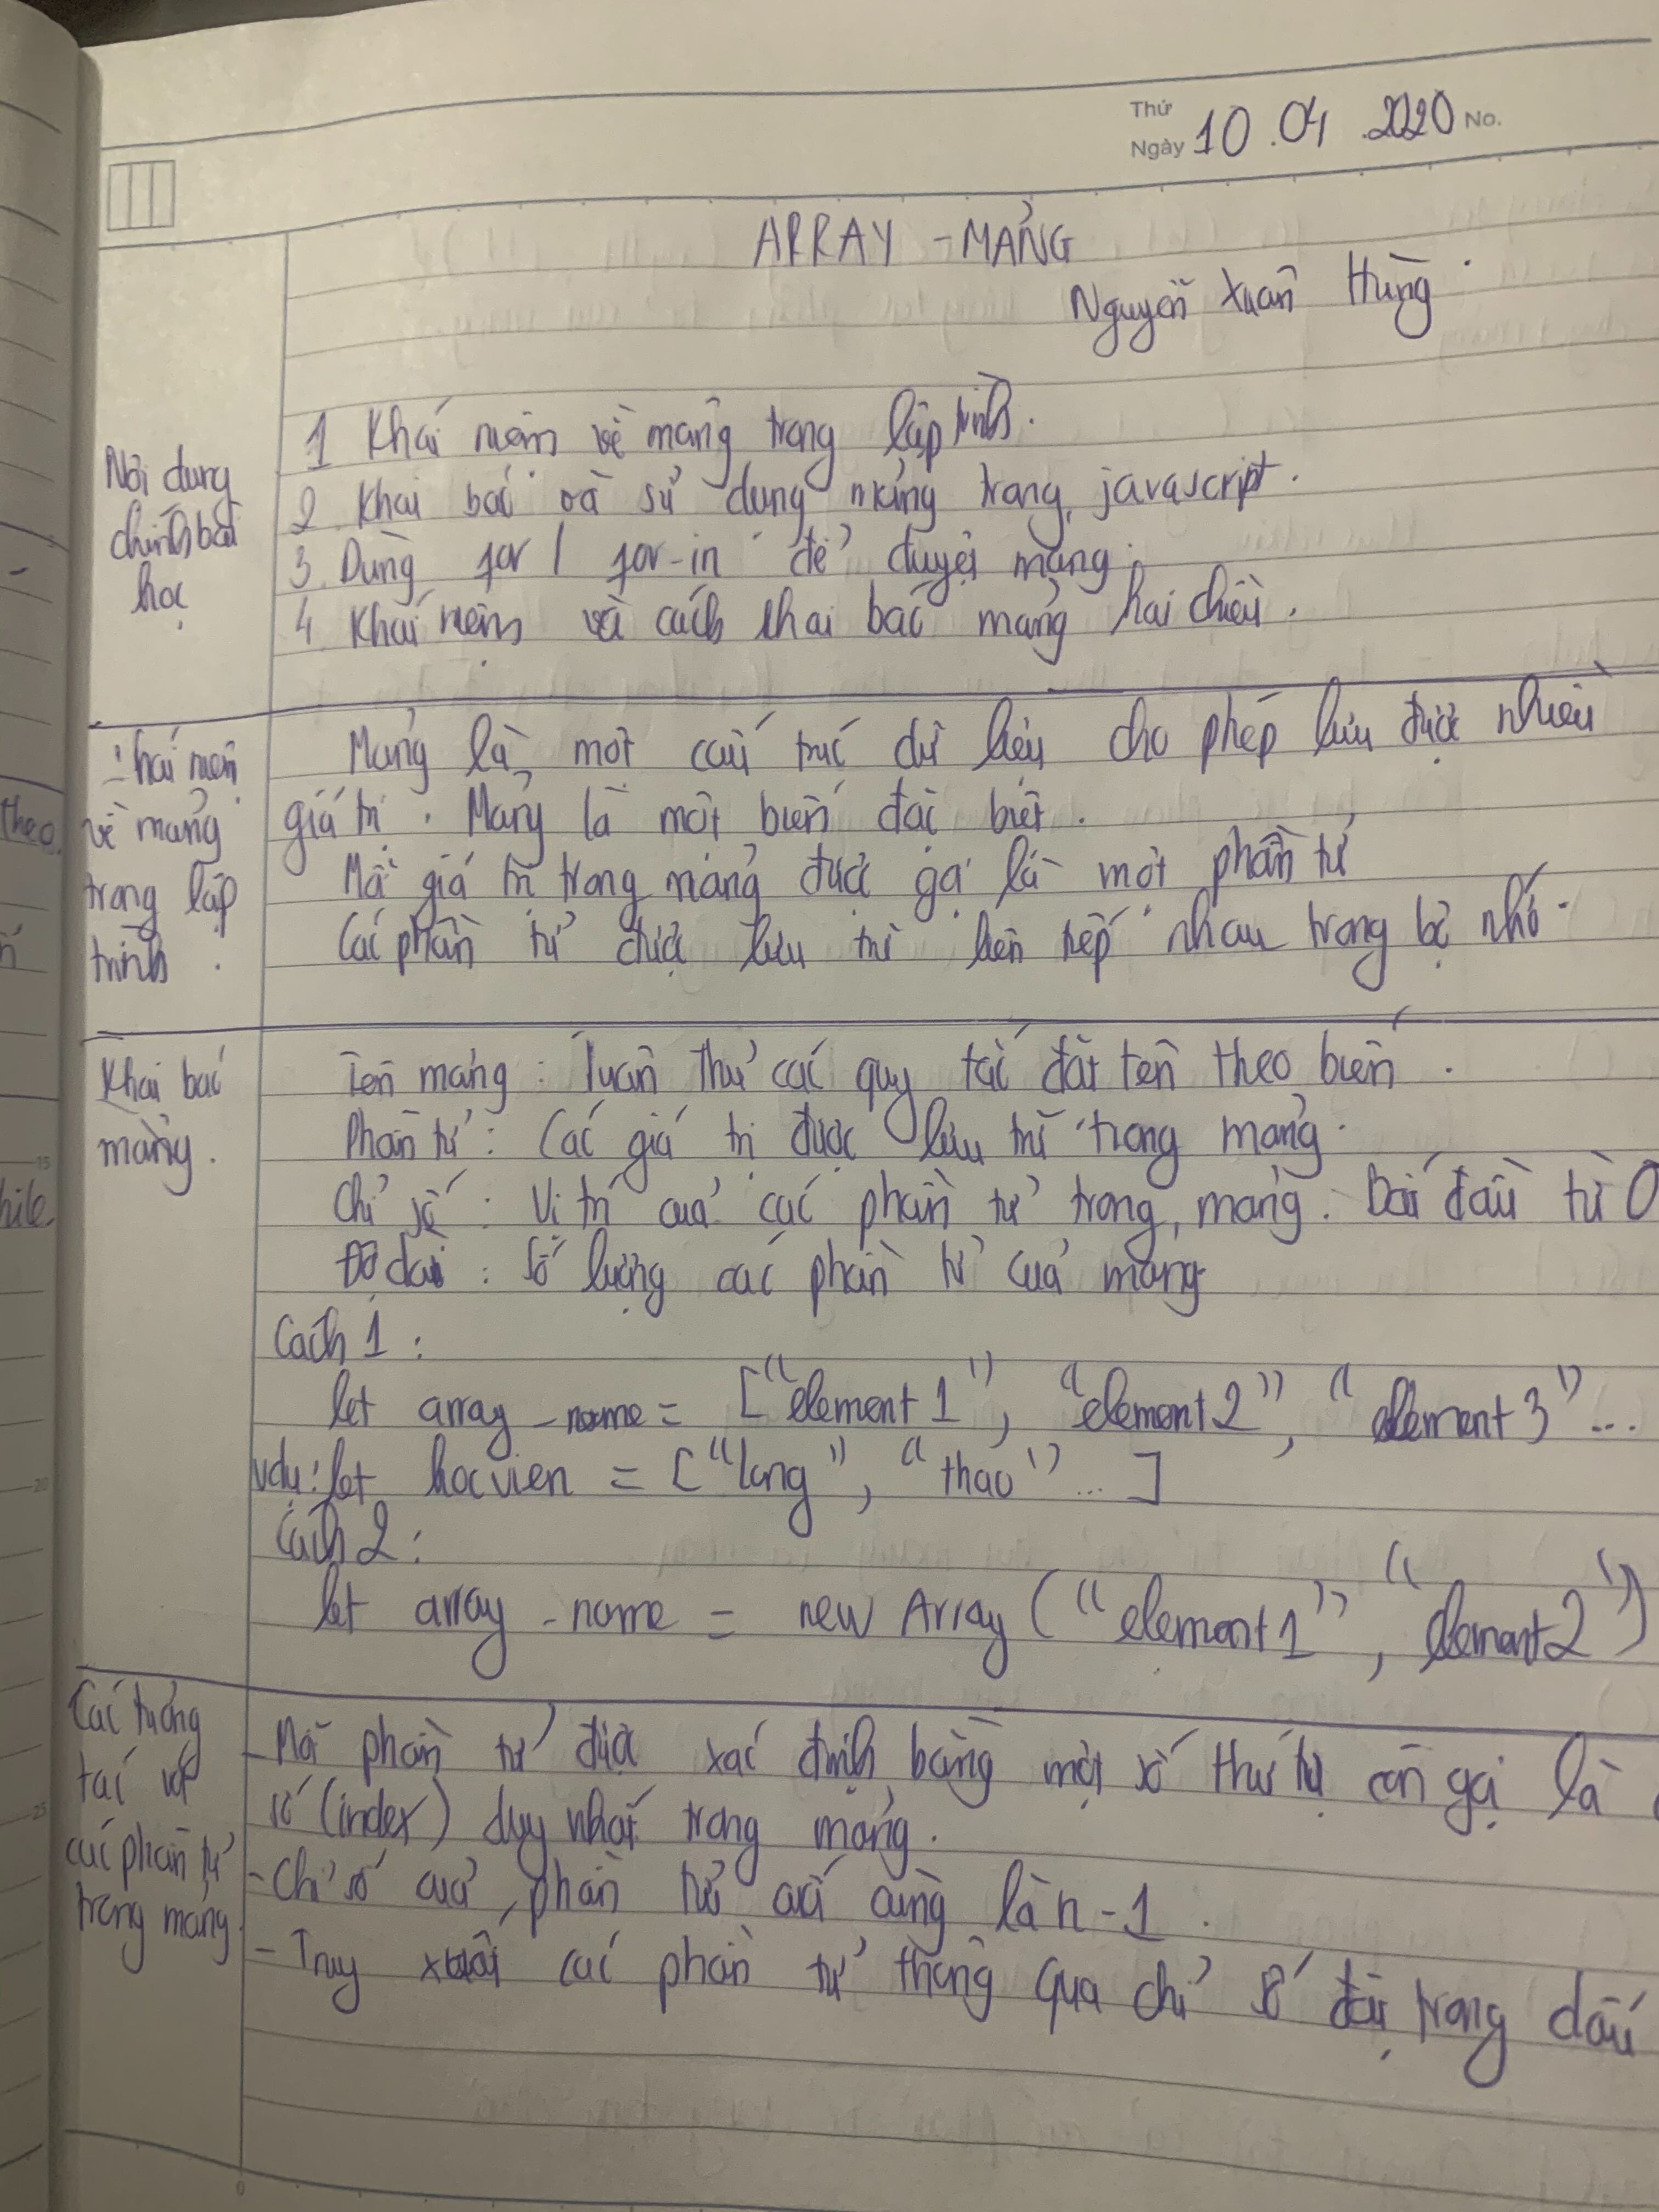 Thứ
Ngày 10.04.2020 No.
ARRAY - MẢNG
Nguyễn Xuân Hùng
Nội dung
chính bài
học
1 Khái niệm về mảng trong lập trình.
2. Khai báo và sử dụng mảng trong javascript.
3. Dùng for / for-in để duyệt mảng.
4. Khái niệm và cách khai báo mảng hai chiều.
Khái niệm
về mảng
trong lập
trình.
Mảng là một cấu trúc dữ liệu cho phép lưu được nhiều
giá trị. Mảng là một biến đặc biệt.
Mỗi giá trị trong mảng được gọi là một phần tử
Các phần tử được lưu trữ liên tiếp nhau trong bộ nhớ.
Khai báo
mảng.
Tên mảng: Tuân thủ các quy tắc đặt tên theo biến.
Phần tử: Các giá trị được lưu trữ trong mảng.
Chỉ số: Vị trí của các phần tử trong mảng. Bắt đầu từ 0
Độ dài: Số lượng các phần tử của mảng
Cách 1:
let array_name = ["element1", "element2", "element3"...
Vdụ: let hocvien = ["long", "thao"...]
Cách 2:
let array_name = new Array("element1", "element2")
Các tương
tác với
các phần tử
trong mảng.
- Mỗi phần tử được xác định bằng một số thứ tự còn gọi là
số (index) duy nhất trong mảng.
- Chỉ số của phần tử cuối cùng là n-1.
- Truy xuất các phần tử thông qua chỉ số đặt trong dấu
theo.
hile
15
20
25
0